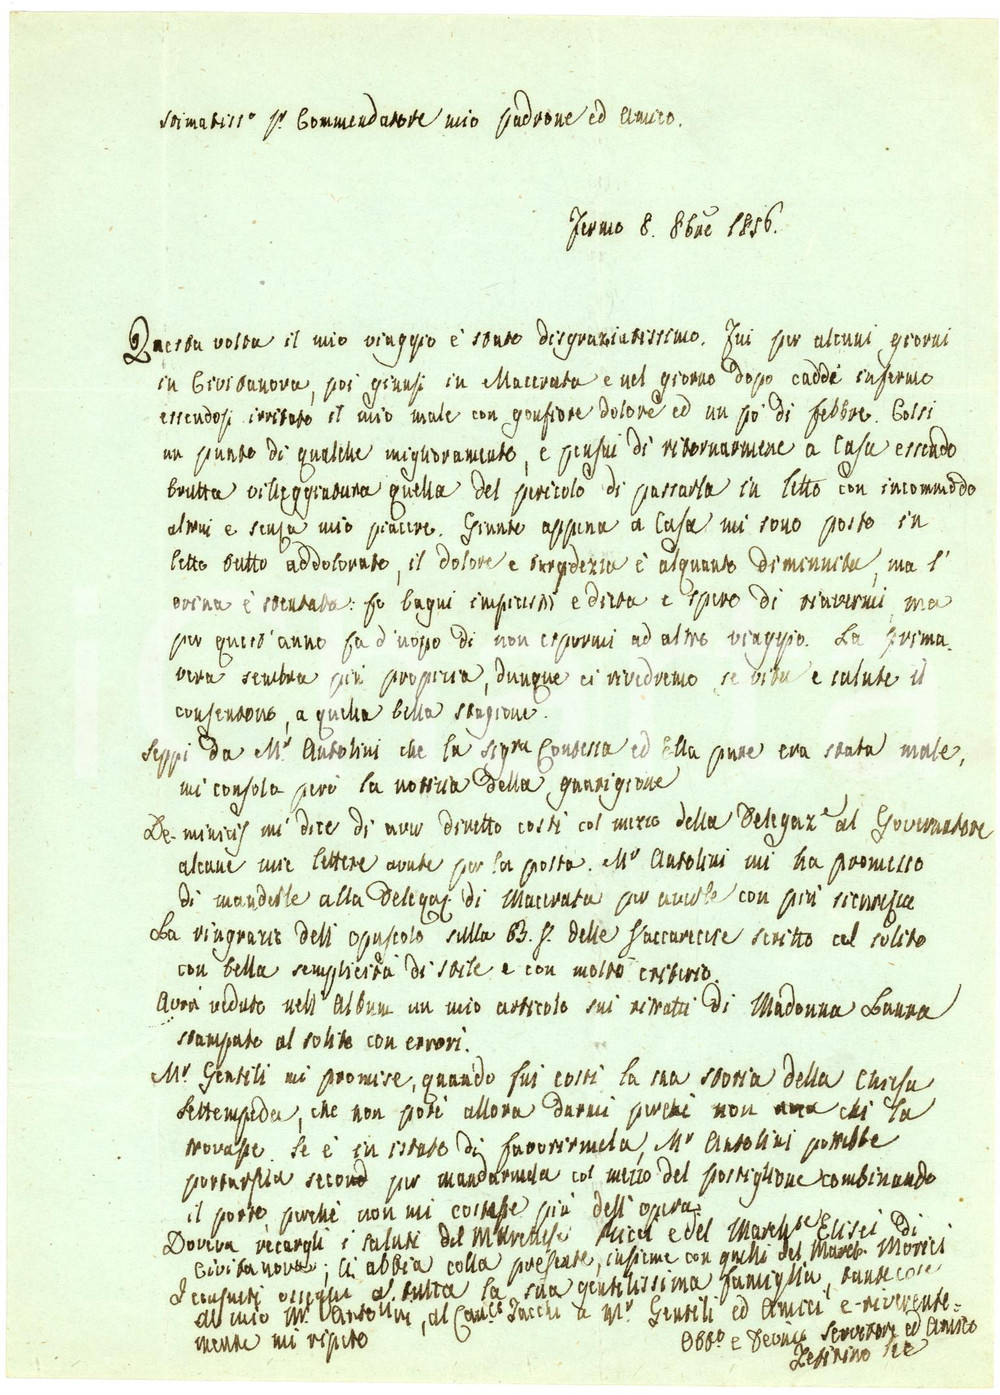 Stimatiss.o Sr Commendatore mio padrone ed Amico.
Fermo 8. 8bre 1856.
Questa volta il mio viaggio è stato disgraziatissimo. Fui per alcuni giorni
in Civitanova, poi giunsi in Macerata e nel giorno dopo caddi infermo
essendosi irritato il mio male con gonfiore dolore ed un pò di febbre. Colsi
un punto di qualche miglioramento, e pensai di ritornarmene a Casa essendo
brutta villeggiatura quella del pericolo di passarla in letto con incommodo
altrui e senza mio piacere. Giunto appena a Casa mi sono posto in
letto tutto addolorato, il dolore e turgdezza è alquanto diminuita, ma l'
orina è stentata: fo bagni empiastri e dieta e spero di riavermi, ma
per quest'anno fa d'uopo di non espormi ad altro viaggio. La prima
vera sembra più propizia, dunque ci rivedremo se vita e salute il
consentono, a quella bella stagione.
Seppi da Mr Antolini che la Sigra Contessa ed Ella pure era stata male,
mi consola però la notizia della guarigione
De-minicis mi dice di aver diretto costì col mezzo della Delegaze al Governatore
alcune mie lettere avute per la posta. Mr Antolini mi ha promesso
di mandarle alla Delegaz di Macerata per averle con più sicurezza
La ringrazio dell'opuscolo sulla B. V. delle scritto al solito
con bella semplicità di stile e con molto criterio.
Avrà veduto nell'Album un mio articolo sui ritratti di Madonna Laura
stampato al solito con errori.
Mr Gentili mi promise, quando fui costì la sua storia della Chiesa
Settempeda, che non potè allora darmi perchè non chi la
trovasse. Se è in istato di favorirmela, Mr Antolini potrebbe
portarsela seco per mandarmela col mezzo del postiglione combinando
il porto, perchè non mi costasse più dell'opera.
Doveva recargli i saluti del Marchese Ricci e del March.se Elisei di
Civitanova; li abbia colla presente, insieme con quelli del March. Morici
I consueti ossequi a tutta la sua gentilissima famiglia, tante cose
al mio Mr Antolini, al Can.co a Mr Gentili ed Amici e riverente=
mente mi ripeto
Obb.o e Devmo Servitore ed Amico
Zefirino Re